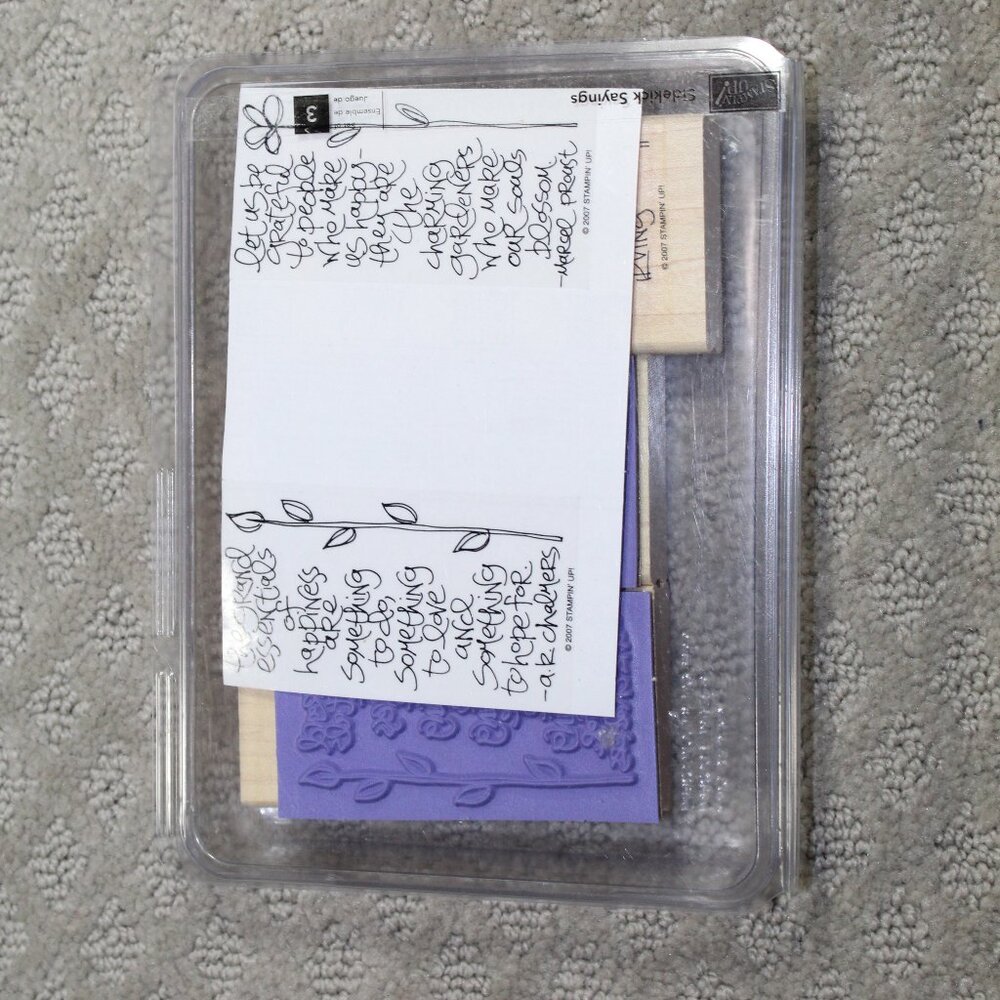 STAMPIN' UP!
Sidekick Sayings
3
Set of
Ensemble de
Juego de
let us be
grateful
to people
who make
us happy-
they are
the
charming
gardeners
who make
our souls
blossom
-Marcel Proust
© 2007 STAMPIN' UP!
IRVING
"
© 2007 STAMPIN' UP!
the grand
essentials
of
happiness
are
something
to do,
something
to love
and
something
to hope for
-a.k. chalmers
© 2007 STAMPIN' UP!